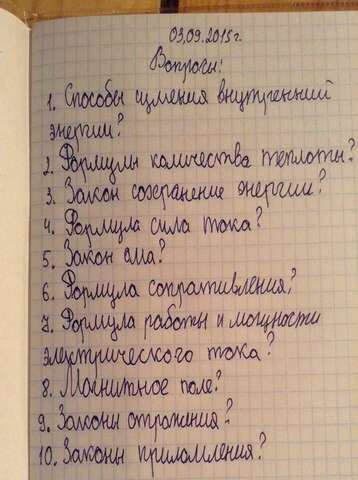 03.09.2015г.
Вопросы:
1. Способы измения внутренний
энергии?
2. Формулы количества теплоты?
3. Закон сохранение энергии?
4. Формула сила тока?
5. Закон ома?
6. Формула сопративления?
7. Формула работы и мощности
электрического тока?
8. Магнитное поле?
9. Законы отражения?
10. Законы приломления?